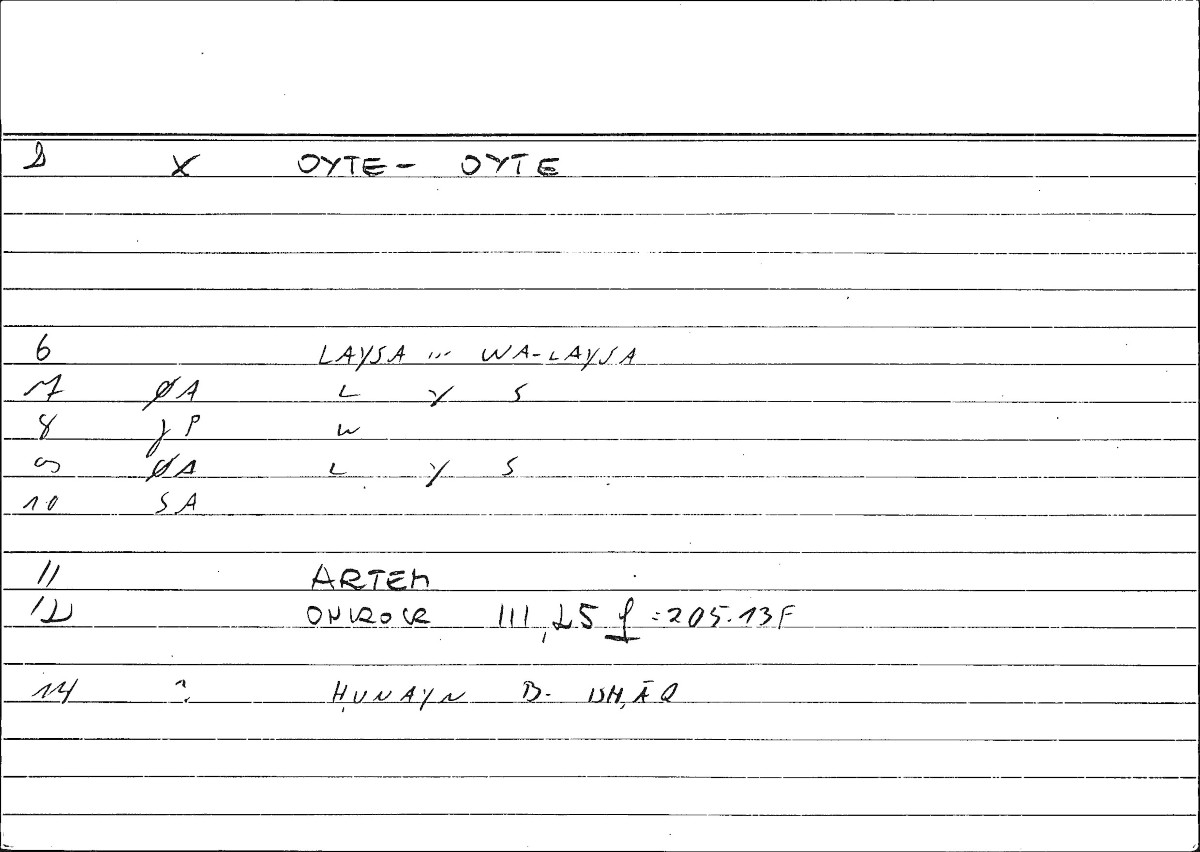 2 X ΟΥΤΕ - ΟΥΤΕ
6 LAYSA ... WA-LAYSA
7 ØA L Y S
8 γP W
9 ØA L Y S
10 SA
11 ARTEM
12 ONIROCR III, 25 = 205.13F
14 ? ḤUNAYN B. ISḤĀQ